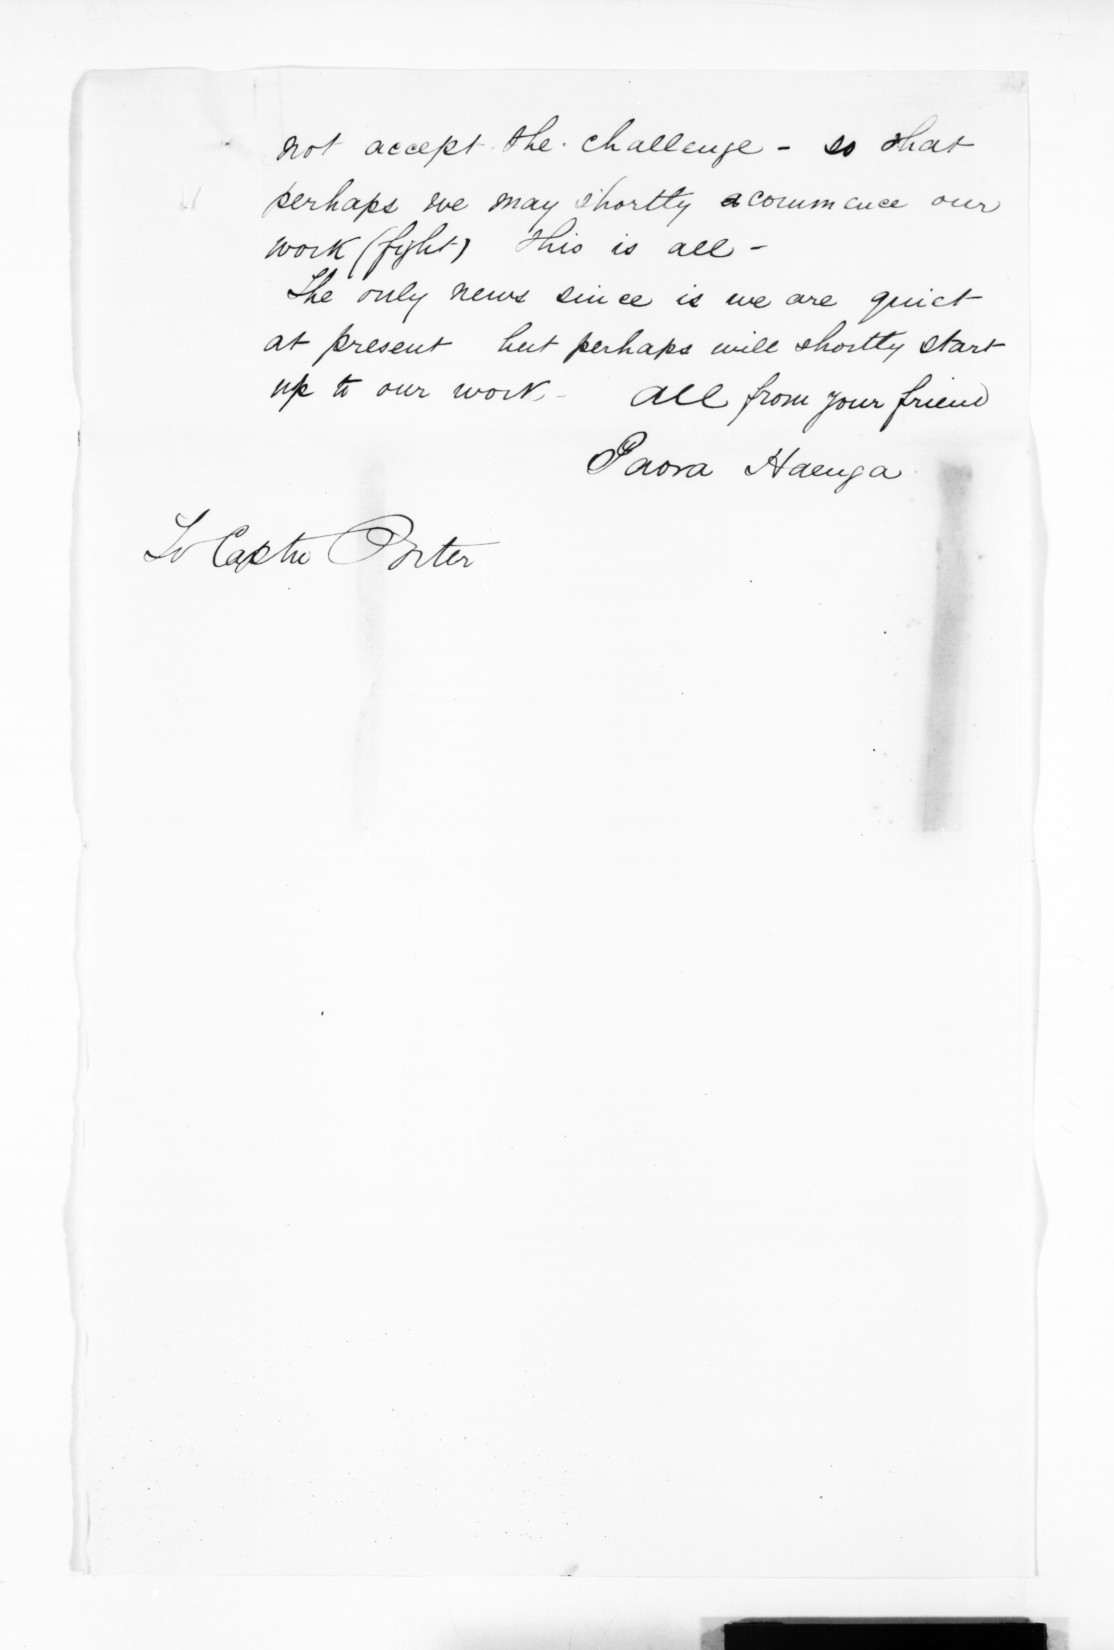 not accept the challenge - so that
perhaps we may shortly commence our
work (fight) this is all -
The only news since is we are quiet
at present but perhaps will shortly start
up to our work - All from your friend
Paora Haenga
To Captn Porter